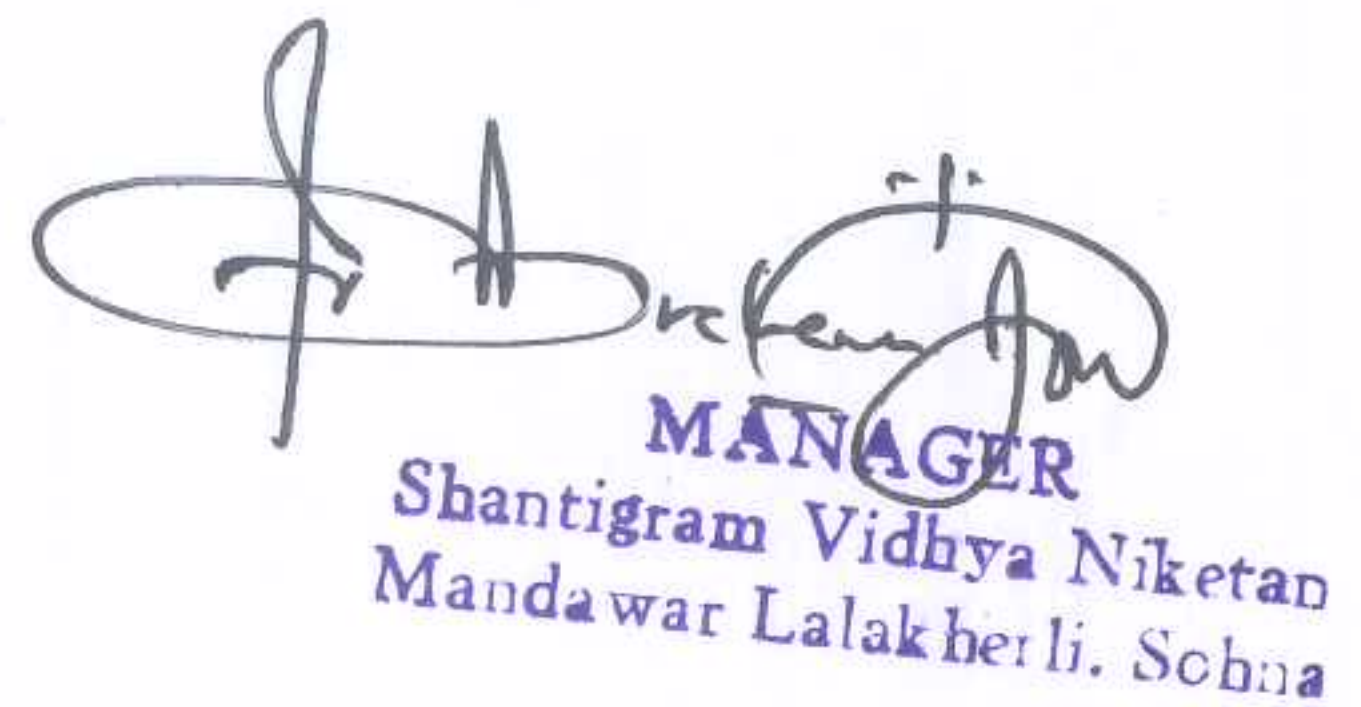 MANAGER
Shantigram Vidhya Niketan
Mandawar Lalakherli. Sohna